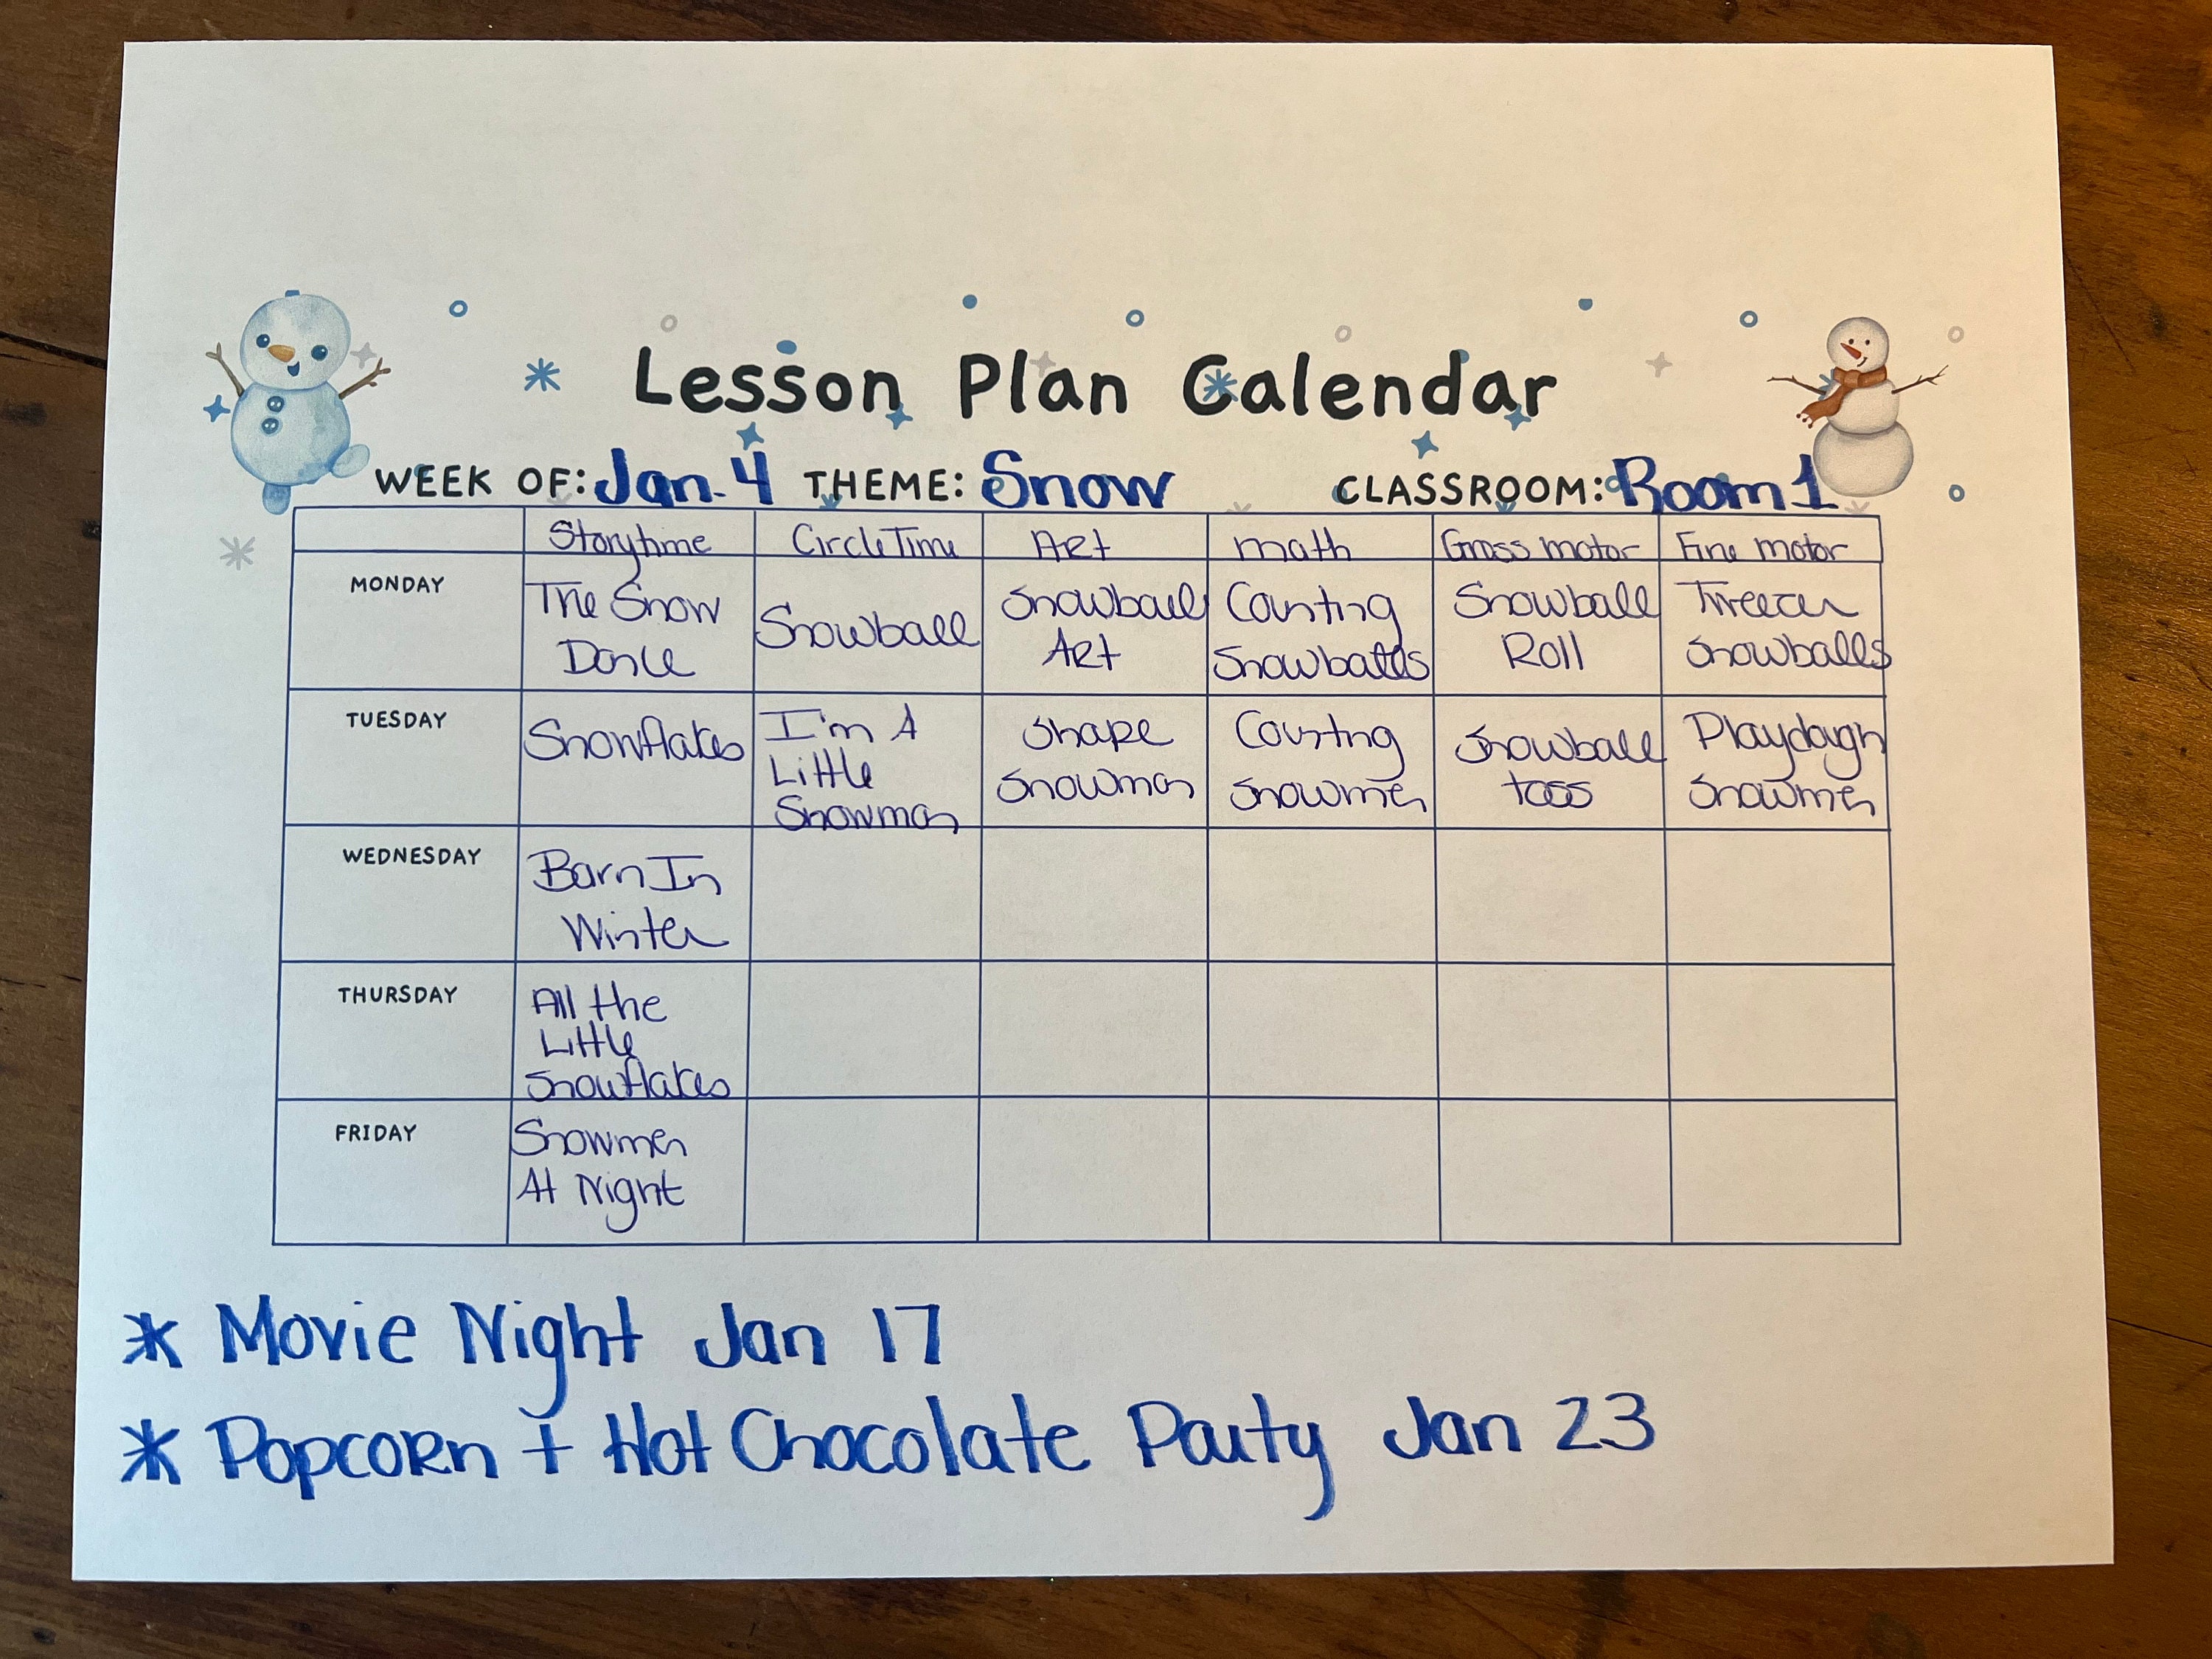 Lesson Plan Calendar
WEEK OF: Jan. 4 THEME: Snow CLASSROOM: Room 1
Storytime Circle Time Art math Gross motor Fine motor
MONDAY
The Snow
Dance
Snowball
Snowball
Art
Counting
Snowballs
Snowball
Roll
Tweezer
Snowballs
TUESDAY
Snowflakes
I'm A
Little
Snowman
Shape
Snowman
Counting
Snowmen
Snowball
toss
Playdough
Snowmen
WEDNESDAY
Barn In
Winter
THURSDAY
All the
Little
Snowflakes
FRIDAY
Snowmen
At Night
* Movie Night Jan 17
* Popcorn + Hot Chocolate Party Jan 23